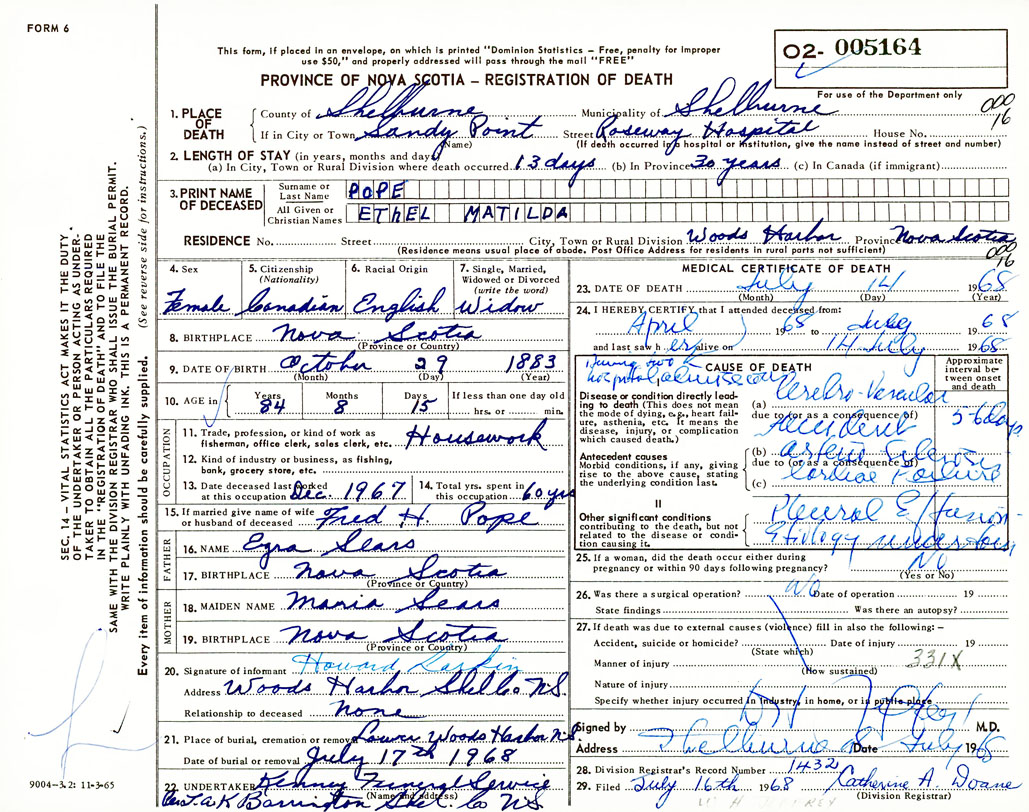 FORM 6
This form, if placed in an envelope, on which is printed "Dominion Statistics – Free, penalty for improper
use $50," and properly addressed will pass through the mail "FREE"
O2- 005164
PROVINCE OF NOVA SCOTIA – REGISTRATION OF DEATH
For use of the Department only
000
16
1. PLACE OF DEATH
County of Shelburne Municipality of Shelburne
If in City or Town Sandy Point Street Roseway Hospital House No.
(Name) (If death occurred in a hospital or institution, give the name instead of street and number)
2. LENGTH OF STAY (in years, months and days)
(a) In City, Town or Rural Division where death occurred 13 days (b) In Province 30 years (c) In Canada (if immigrant)
3. PRINT NAME OF DECEASED
Surname or Last Name POPE
All Given or Christian Names ETHEL MATILDA
RESIDENCE No. Street City, Town or Rural Division Woods Harbor Province Nova Scotia
(Residence means usual place of abode. Post Office Address for residents in rural parts not sufficient)
000
16
4. Sex Female
5. Citizenship (Nationality) Canadian
6. Racial Origin English
7. Single, Married, Widowed or Divorced (write the word) Widow
8. BIRTHPLACE Nova Scotia
(Province or Country)
9. DATE OF BIRTH October 29 1883
(Month) (Day) (Year)
10. AGE in Years 84 Months 8 Days 15 If less than one day old hrs. or min.
OCCUPATION
11. Trade, profession, or kind of work as fisherman, office clerk, sales clerk, etc. Housework
12. Kind of industry or business, as fishing, bank, grocery store, etc.
13. Date deceased last worked at this occupation Dec. 1967
14. Total yrs. spent in this occupation 60 yrs
15. If married give name of wife or husband of deceased Fred H. Pope
FATHER
16. NAME Ezra Sears
17. BIRTHPLACE Nova Scotia
(Province or Country)
MOTHER
18. MAIDEN NAME Maria Sears
19. BIRTHPLACE Nova Scotia
(Province or Country)
20. Signature of informant Howard Larkin
Address Woods Harbor Shel. Co N.S.
Relationship to deceased None
21. Place of burial, cremation or removal Lower Woods Harbor N.S.
Date of burial or removal July 17th 1968
22. UNDERTAKER Kenny Funeral Service
(Name and address)
Barrington Shel. Co NS
MEDICAL CERTIFICATE OF DEATH
23. DATE OF DEATH July 14 1968
(Month) (Day) (Year)
24. I HEREBY CERTIFY that I attended deceased from:
April 1968 to July 1968
and last saw her alive on 14 July 1968
CAUSE OF DEATH
Approximate interval between onset and death
hospital admission
Disease or condition directly leading to death (This does not mean the mode of dying, e.g., heart failure, asthenia, etc. It means the disease, injury, or complication which caused death.)
(a) Cerebro-Vascular
due to (or as a consequence of)
Accident
5-6 days
Antecedent causes
Morbid conditions, if any, giving rise to the above cause, stating the underlying condition last.
(b)
due to (or as a consequence of)
(c) Cardiac Failure
II
Other significant conditions contributing to the death, but not related to the disease or condition causing it.
Pleural Effusion
Etiology
25. If a woman, did the death occur either during pregnancy or within 90 days following pregnancy? No
(Yes or No)
26. Was there a surgical operation? No Date of operation 19
State findings Was there an autopsy?
27. If death was due to external causes (violence) fill in also the following: –
Accident, suicide or homicide? Date of injury 19
(State which)
Manner of injury 331X
(How sustained)
Nature of injury
Specify whether injury occurred in industry, in home, or in public place
Signed by M.D.
Address Shelburne Date July 1968
28. Division Registrar's Record Number 1432
29. Filed July 16th 1968 Catherine A. Doane
(Division Registrar)
SEC. 14 – VITAL STATISTICS ACT MAKES IT THE DUTY
OF THE UNDERTAKER OR PERSON ACTING AS UNDER-
TAKER TO OBTAIN ALL THE PARTICULARS REQUIRED
IN THE "REGISTRATION OF DEATH" AND TO FILE THE
SAME WITH THE DIVISION REGISTRAR WHO SHALL ISSUE THE BURIAL PERMIT.
WRITE PLAINLY WITH UNFADING INK. THIS IS A PERMANENT RECORD.
Every item of information should be carefully supplied. (See reverse side for instructions.)
9004–3.2: 11-3-65